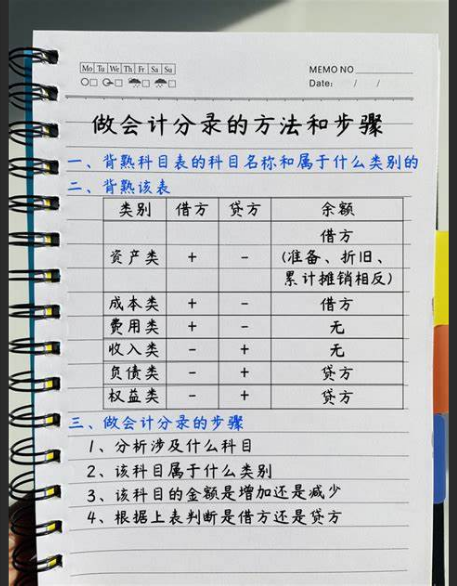 Mo Tu We Th Fr Sa Su
MEMO NO
Date: / /
做会计分录的方法和步骤
一、背熟科目表的科目名称和属于什么类别的
二、背熟该表
类别 借方 贷方 余额
资产类 + - 借方
(准备、折旧、
累计摊销相反)
成本类 + - 借方
费用类 + - 无
收入类 - + 无
负债类 - + 贷方
权益类 - + 贷方
三、做会计分录的步骤
1、分析涉及什么科目
2、该科目属于什么类别
3、该科目的金额是增加还是减少
4、根据上表判断是借方还是贷方